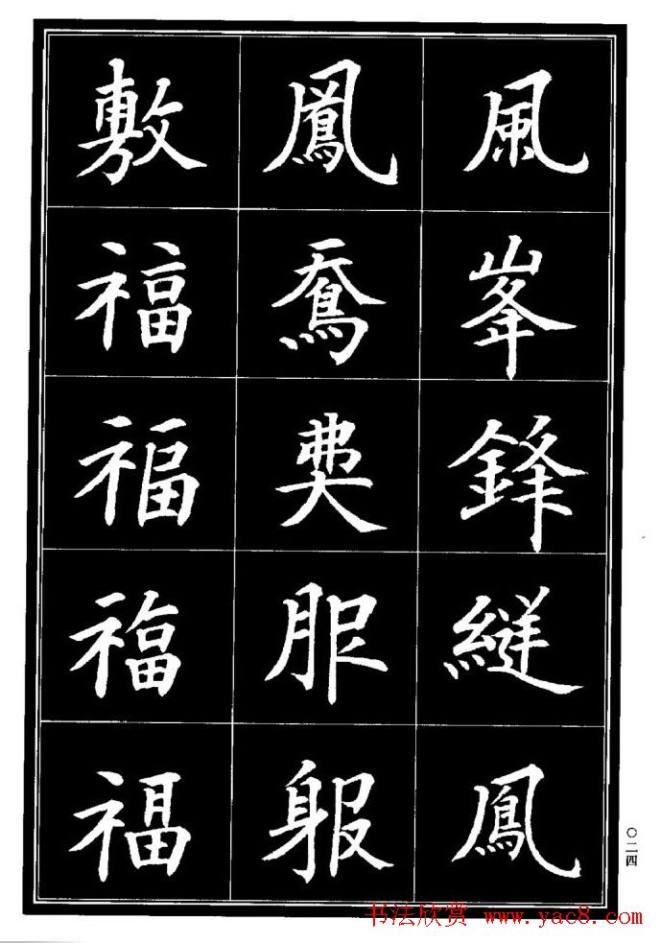 風峯鋒縫鳳
鳳服
敷福福福福
〇二四
书法欣赏 www.yac8.com